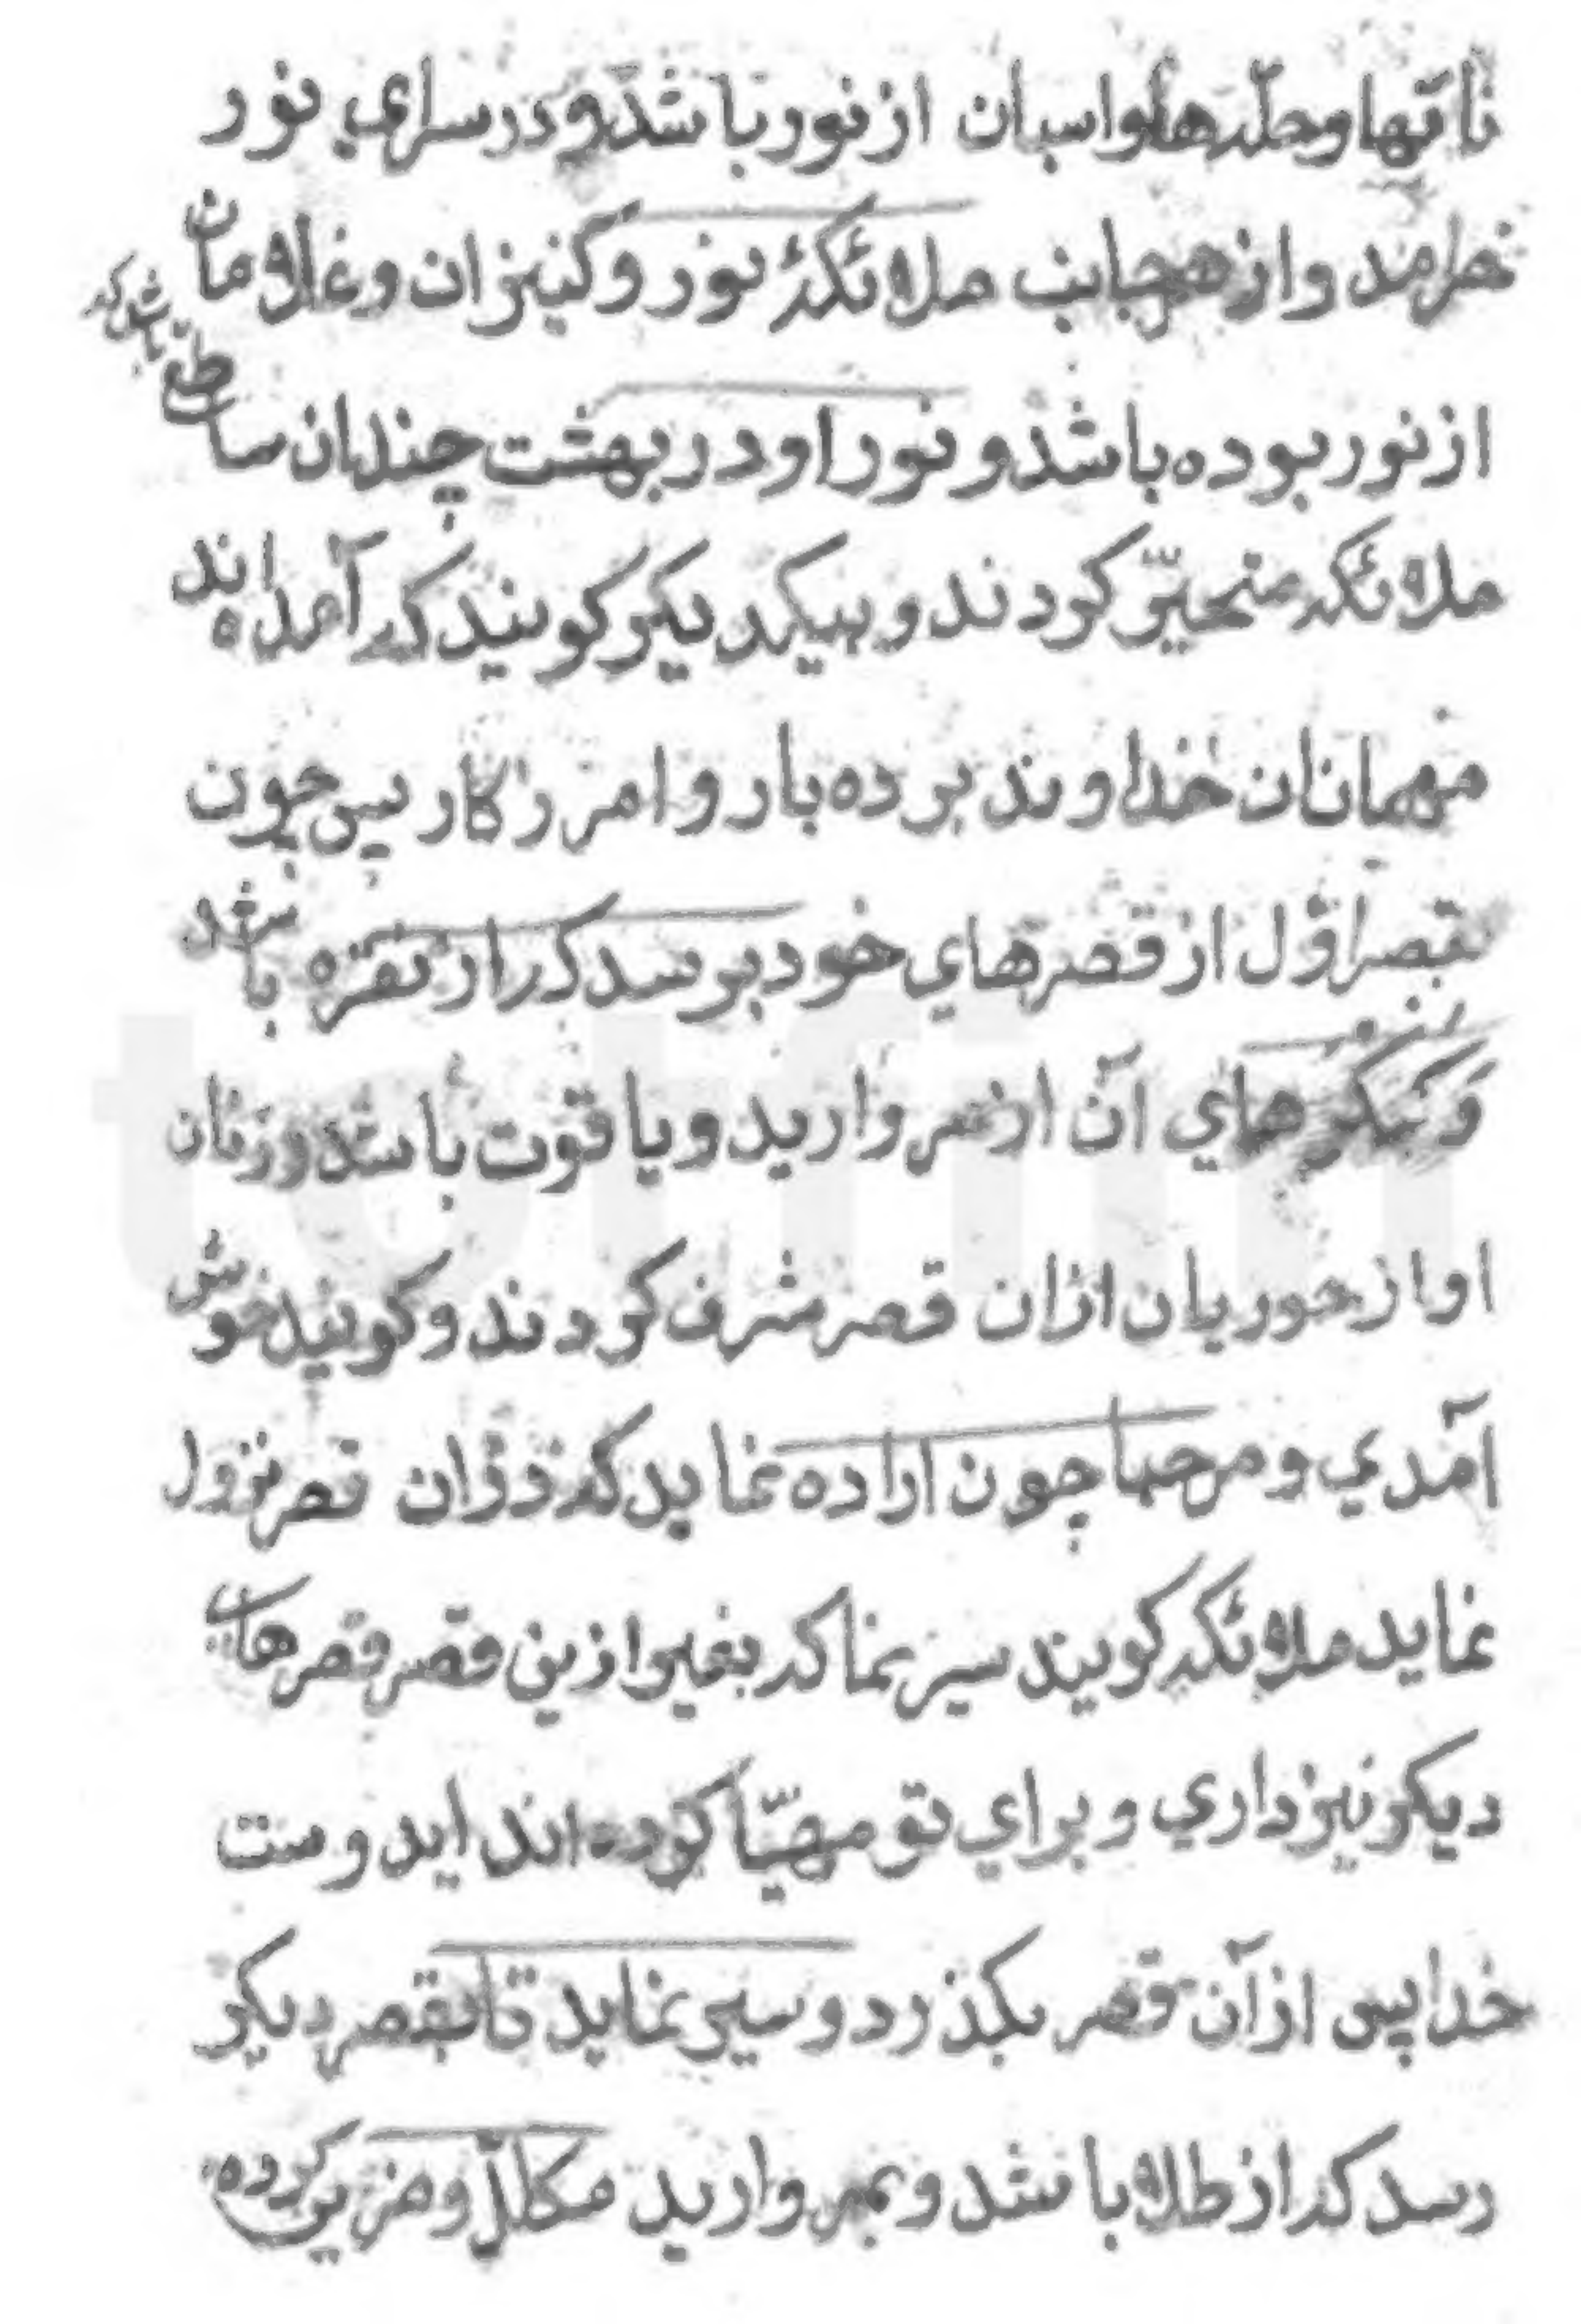 ناقها و حله‌ها و اسبان از نور باشد و در سراي نور
خرامند و از هر جانب ملائكهٔ نور و كنيزان و غلامان
از نور بوده باشد و نور او در بهشت چندان ساطع باشد كه
ملائكه متحيّر كردند و بيكديكر كويند كه آمده اند
مهمانان خداوند برده بار و امرزكار پس چون
بقصر اوّل از قصرهاي خود برسد كه از نقره باشد
و كنكرهاي آن از مرواريد و ياقوت باشد و زنان
او از حوريان از ان قصر مشرف كردند و كويند خوش
آمدي و مرحبا چون اراده نمايد كه در ان قصر نزول
نمايد ملائكه كويند سير نما كه بغير ازين قصر قصرهاي
ديكر نيز داري و براي تو مهيّا كرده اند ايدوست
خدا پس از آن قصر بكذرد و سير نمايد تا بقصر ديكر
رسد كه از طلا باشد و بمرواريد مكلّل و مزين كرده